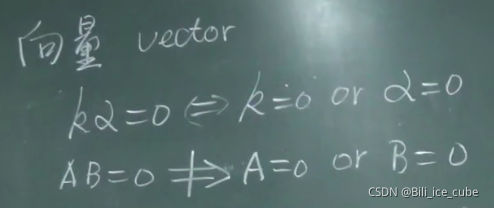 向量 vector
kα=0 ⇔ k=0 or α=0
AB=0 ⇏ A=0 or B=0
CSDN @Bili_ice_cube